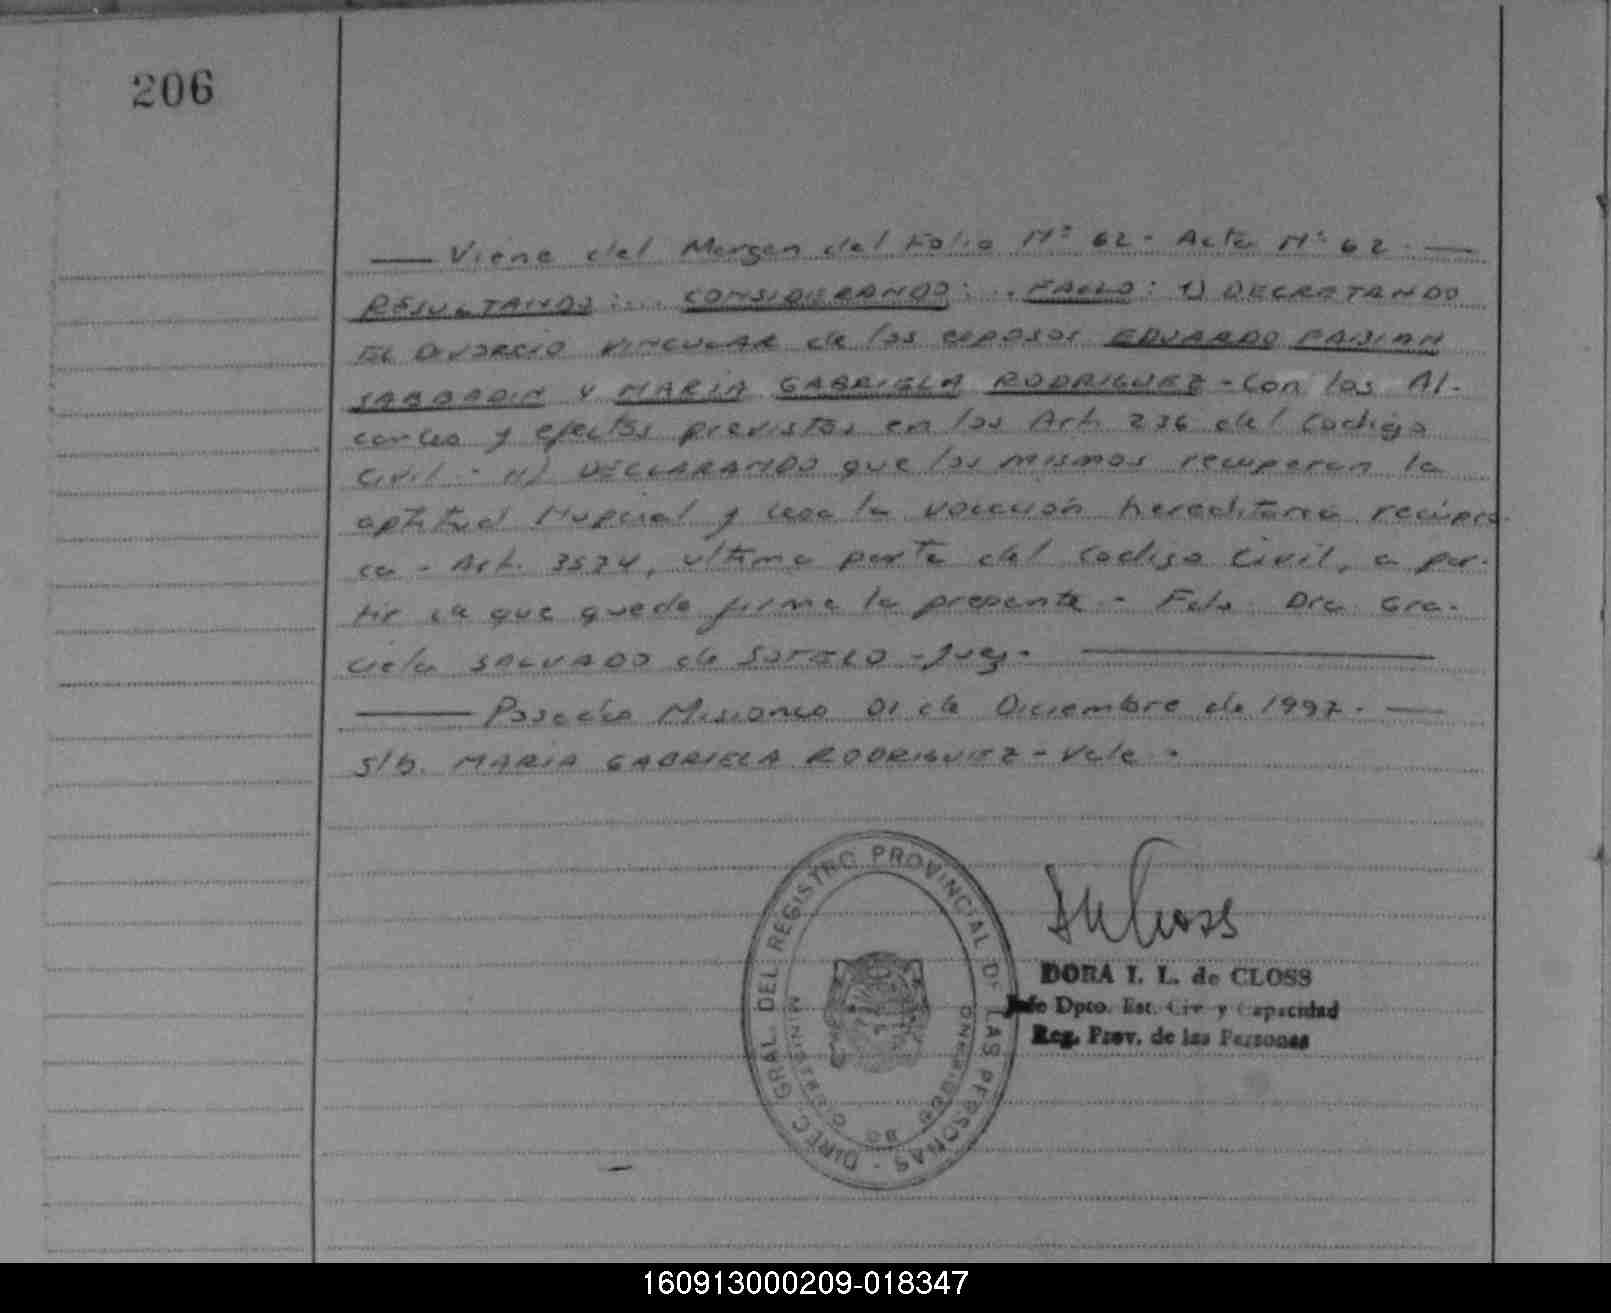 206
Viene del Margen del Folio Nº 62 - Acta Nº 62.
RESULTANDO: .. CONSIDERANDO: .. FALLO: 1) DECRETANDO
EL DIVORCIO VINCULAR de los esposos EDUARDO FABIAN
SABORDIN Y MARIA GABRIELA RODRIGUEZ - Con los Al-
cances y efectos previstos en los Art. 236 del Codigo
Civil - II) DECLARANDO que los mismos recuperan la
aptitud Nupcial y cesa la vocación hereditaria recipro-
ca - Art. 3574, ultima parte del Codigo Civil, a par-
tir de que quede firme la presente - Fdo. Dra. Gra-
ciela SALVADO de SOTELO - Juez -
Posadas Misiones 01 de Diciembre de 1997.
S/b. MARIA GABRIELA RODRIGUEZ - Vale -
DIREC. GRAL. DEL REGISTRO PROVINCIAL DE LAS PERSONAS
MINISTERIO DE GOBIERNO
DORA I. L. de CLOSS
Jefe Dpto. Est. Civ. y Capacidad
Reg. Prov. de las Personas
160913000209-018347